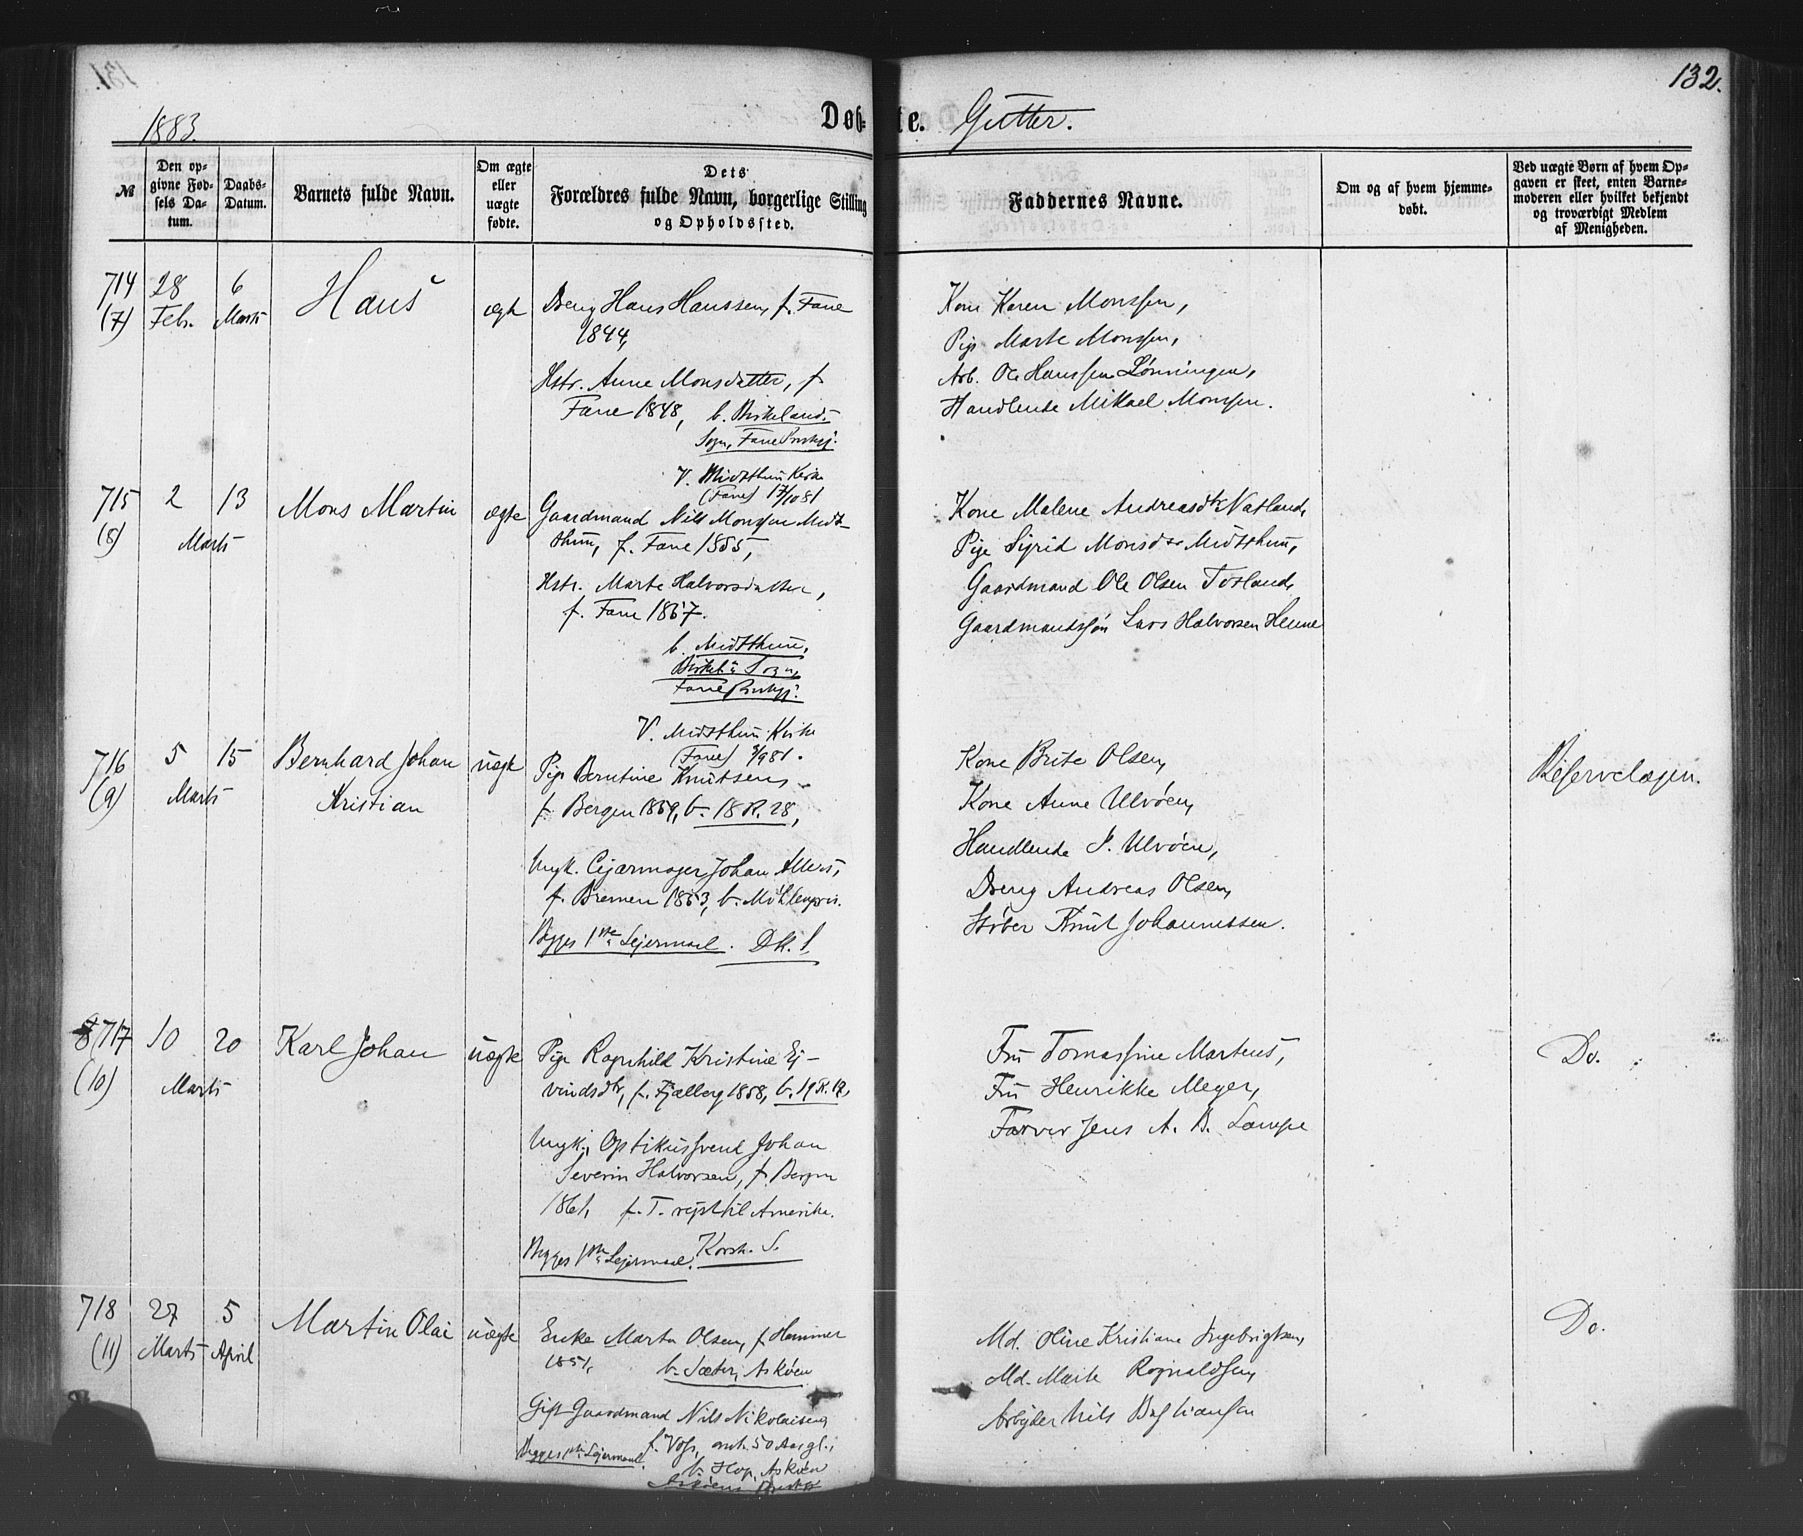 132.
1883.
Døbte. Gutter.
№
Den opgivne Fødsels Datum.
Daabs-Datum.
Barnets fulde Navn.
Om ægte eller uægte fødte.
Dets Forældres fulde Navn, borgerlige Stilling og Opholdssted.
Faddernes Navne.
Om og af hvem hjemmedøbt.
Ved uægte Børn af hvem Opgaven er skeet, enten Barnemoderen eller hvilket bekjendt og troværdigt Medlem af Menigheden.
714 (7)
28 Febr.
6 Marts
Hans
ægte
Dreng Hans Hanssen, f. Fane
1844,
Hstr. Anne Monsdatter, f.
Fane 1848, b. Birkelands
Sogn, Fane
Kone Karen Monssen,
Pige Marte Monssen,
Arb. Ole Hanssen Lønningen,
Handlende Mikael Monssen.
715 (8)
2 13
Marts
Mons Martin
ægte
V. Midtthun Kirke
(Fane) 17/10 81
Gaardmand Nils Monssen Midt-
thun, f. Fane 1855,
Hstr. Marte Halvorsdatter,
f. Fane 1857.
b. Midtthun,
Sogn,
Fane
Kone Malene Andreasdtr Natland,
Pige Sigrid Monsdtr Midtthun,
Gaardmand Ole Olsen Totland,
Gaardmandssøn Lars Halvorsen Henne
716 (9)
5 15
Marts
Bernhard Johan
Kristian
uægte
V. Midtthun Kirke
(Fane) 81.
Pige Berntine Knutsen,
f. Bergen 1859, b. 18 R. 28,
Ungk. Cigarmager Johan
f. Bremen 1853, b. Møhlenpris.
Begges 1ste Leiermaal. DK. S.
Kone Brite Olsen,
Kone Anne Ulvøen,
Handlende P. Ulvøen,
Dreng Andreas Olsen,
Støber Knut Johannessen.
Reservelægen.
717 (10)
10 20
Marts
Karl Johan
uægte
Pige Ragnhild Kristine Ej-
vindsdtr, f. Fjælberg 1858, b. 19 R. 12,
Ungk. Optikussvend Johan
Severin Halvorsen, f. Bergen
1861, f. T. rejst til Amerika.
Begges 1ste Leiermaal. Korsk. S.
Fru Tomassine Martens,
Fru Henrikke Meyer,
Farver Jens A. B. Lampe
Do.
718 (11)
27 Marts
5 April
Martin Olai
uægte
Enke Marta Olsen, f. Hammer
1851, b. Sæter, Askøen
Gift Gaardmand Nils Nikolaisen,
f. Voss, omtr. 50 Aar gl.,
b. Hop, Askøen
Begges 1ste Leiermaal.
Askøens
Md. Oline Kristiane Ingebrigtsen,
Md. Marte Rognaldsen,
Arbejder Nils Bastiansen
Do.